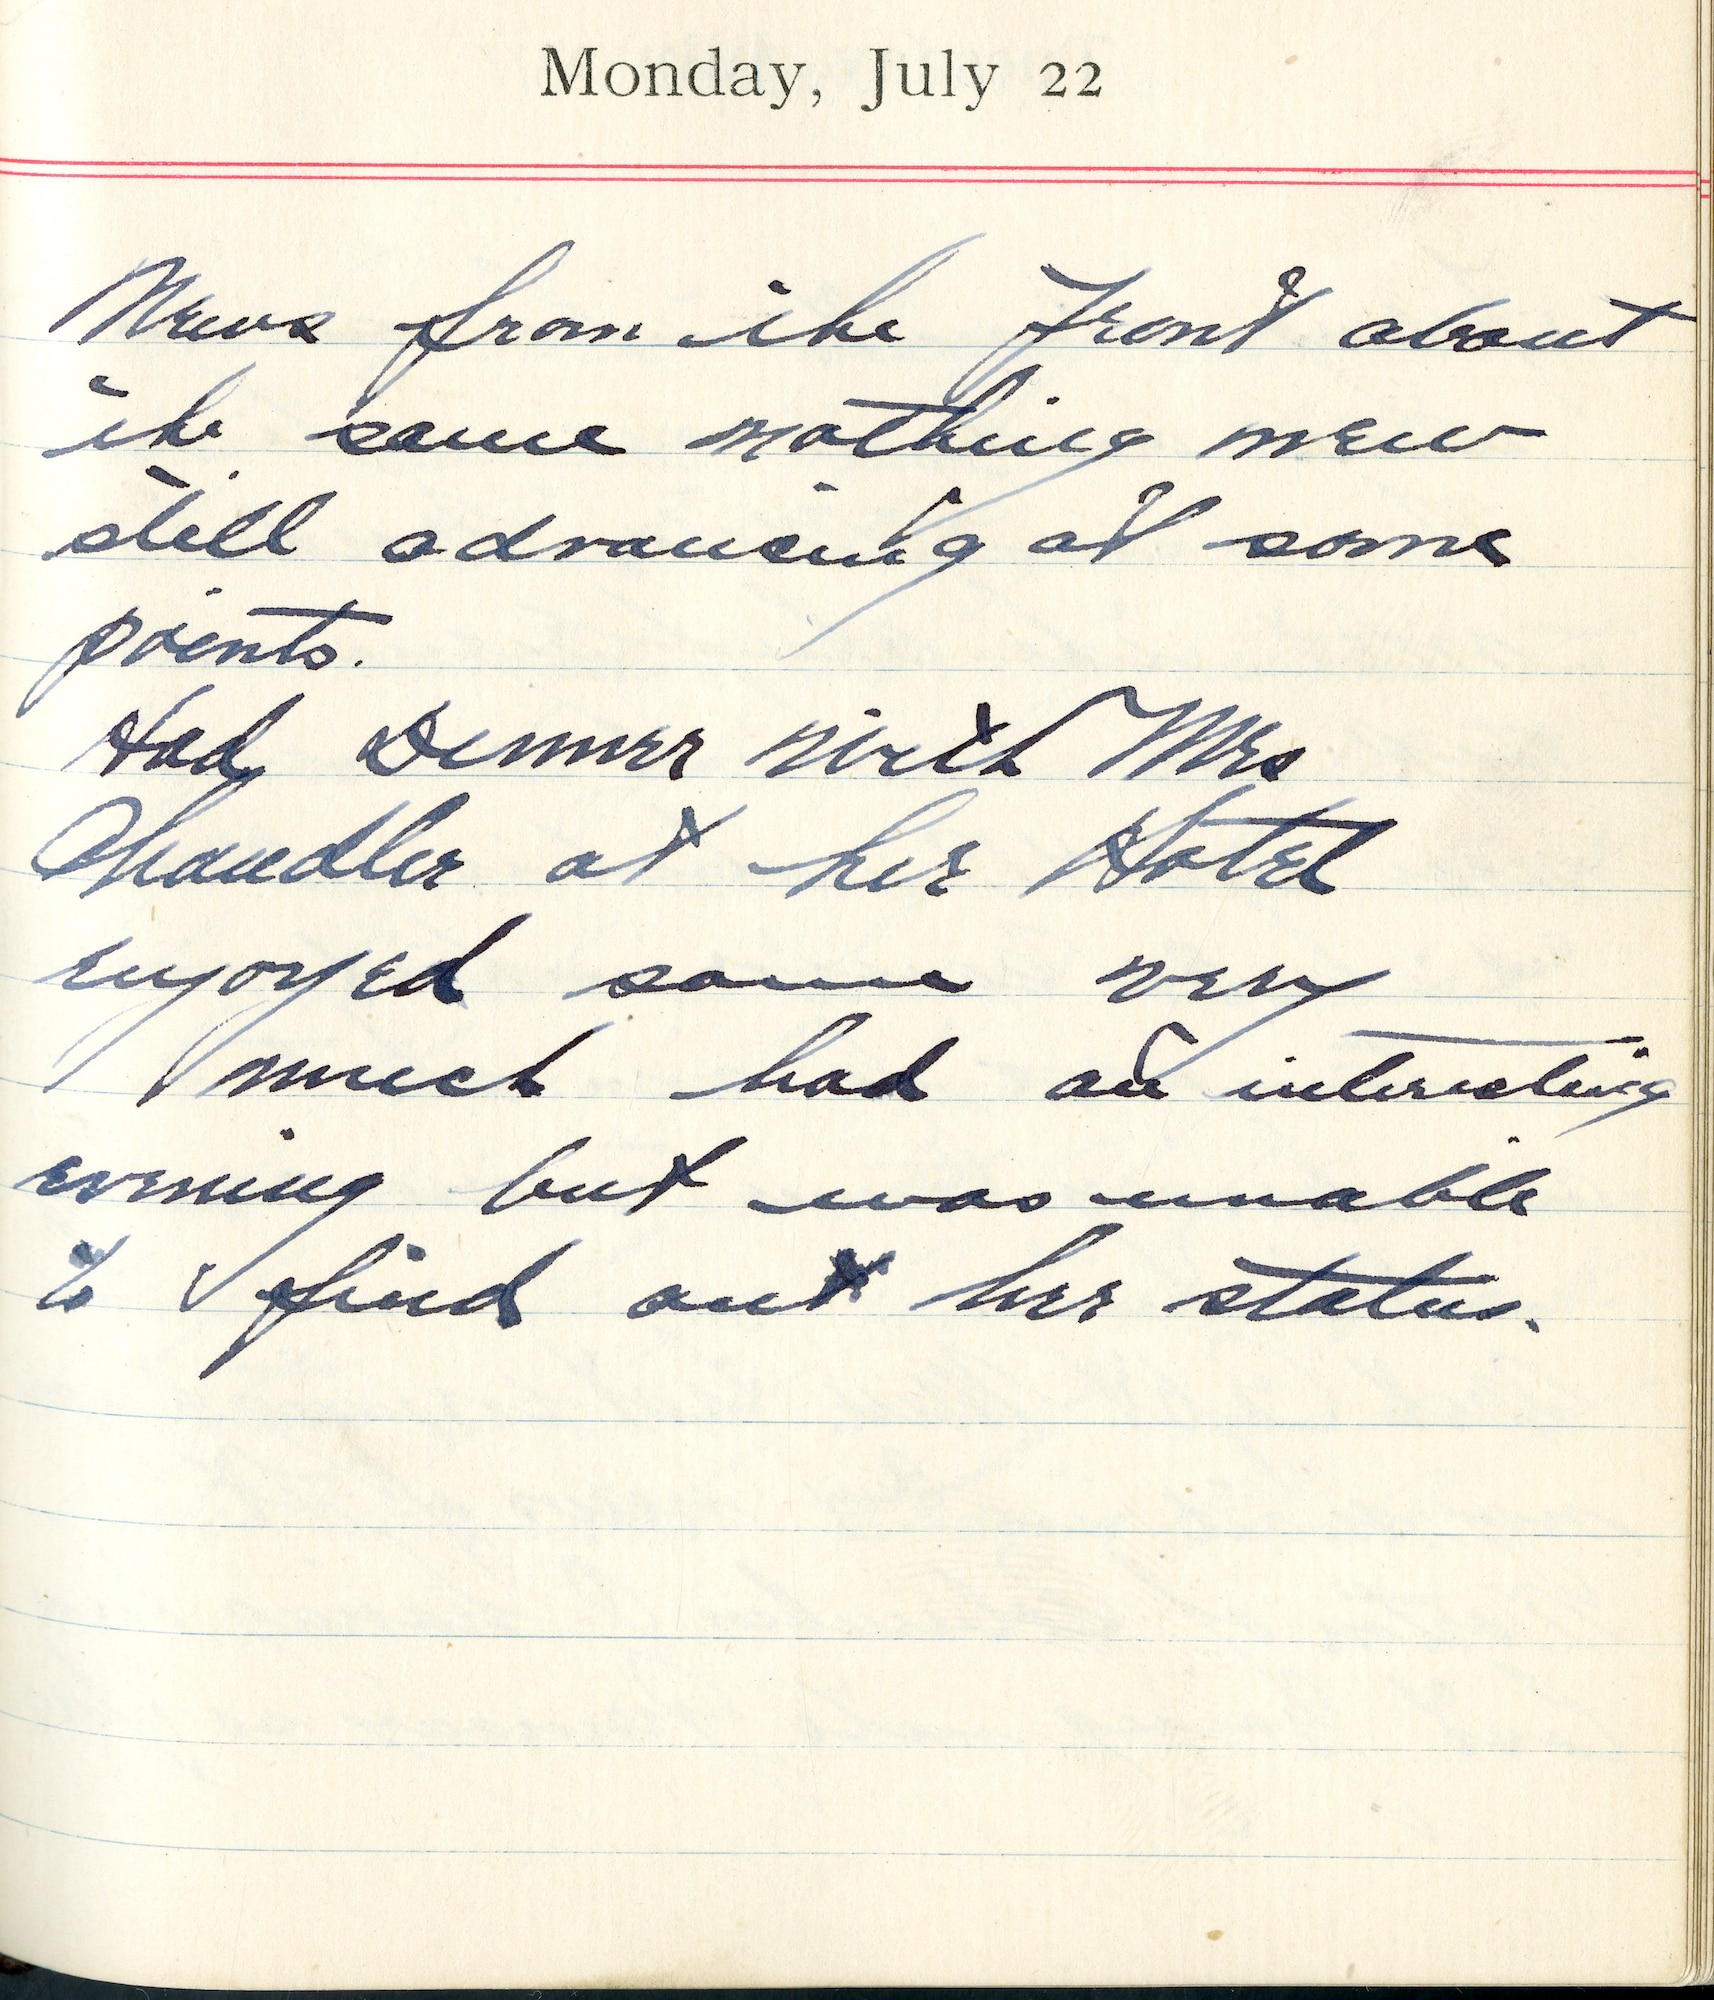 Monday, July 22
News from the Front about
the same nothing new
still advancing at some
points.
Had Dinner with Mrs
Chandler at her Hotel
enjoyed same very
much had an interesting
evening but was unable
to find out her status.